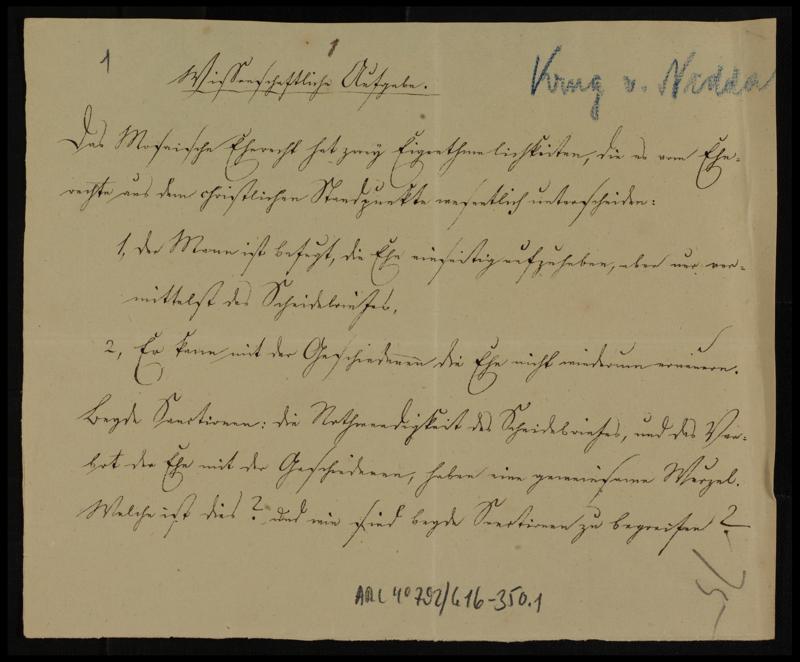 1
1
Wissenschaftliche Aufgabe.
Krug v. Nidda
Das Mosaische Eherecht hat zwey Eigenthümlichkeiten, die es vom Ehe-
rechte aus dem christlichen Standpunkte wesentlich unterscheiden:
1, der Mann ist befugt, die Ehe einseitig aufzuheben, aber nur ver-
mittelst des Scheidebriefes,
2, Er kann mit der Geschiedenen die Ehe nicht wiederum erneuern.
Beyde Sanctionen: die Nothwendigkeit des Scheidebriefes, und das Ver-
bot der Ehe mit der Geschiedenen, haben eine gemeinsame Wurzel.
Welche ist dies? und wie sind beyde Sanctionen zu begreifen?
ARC 4o 792/G16-350.1